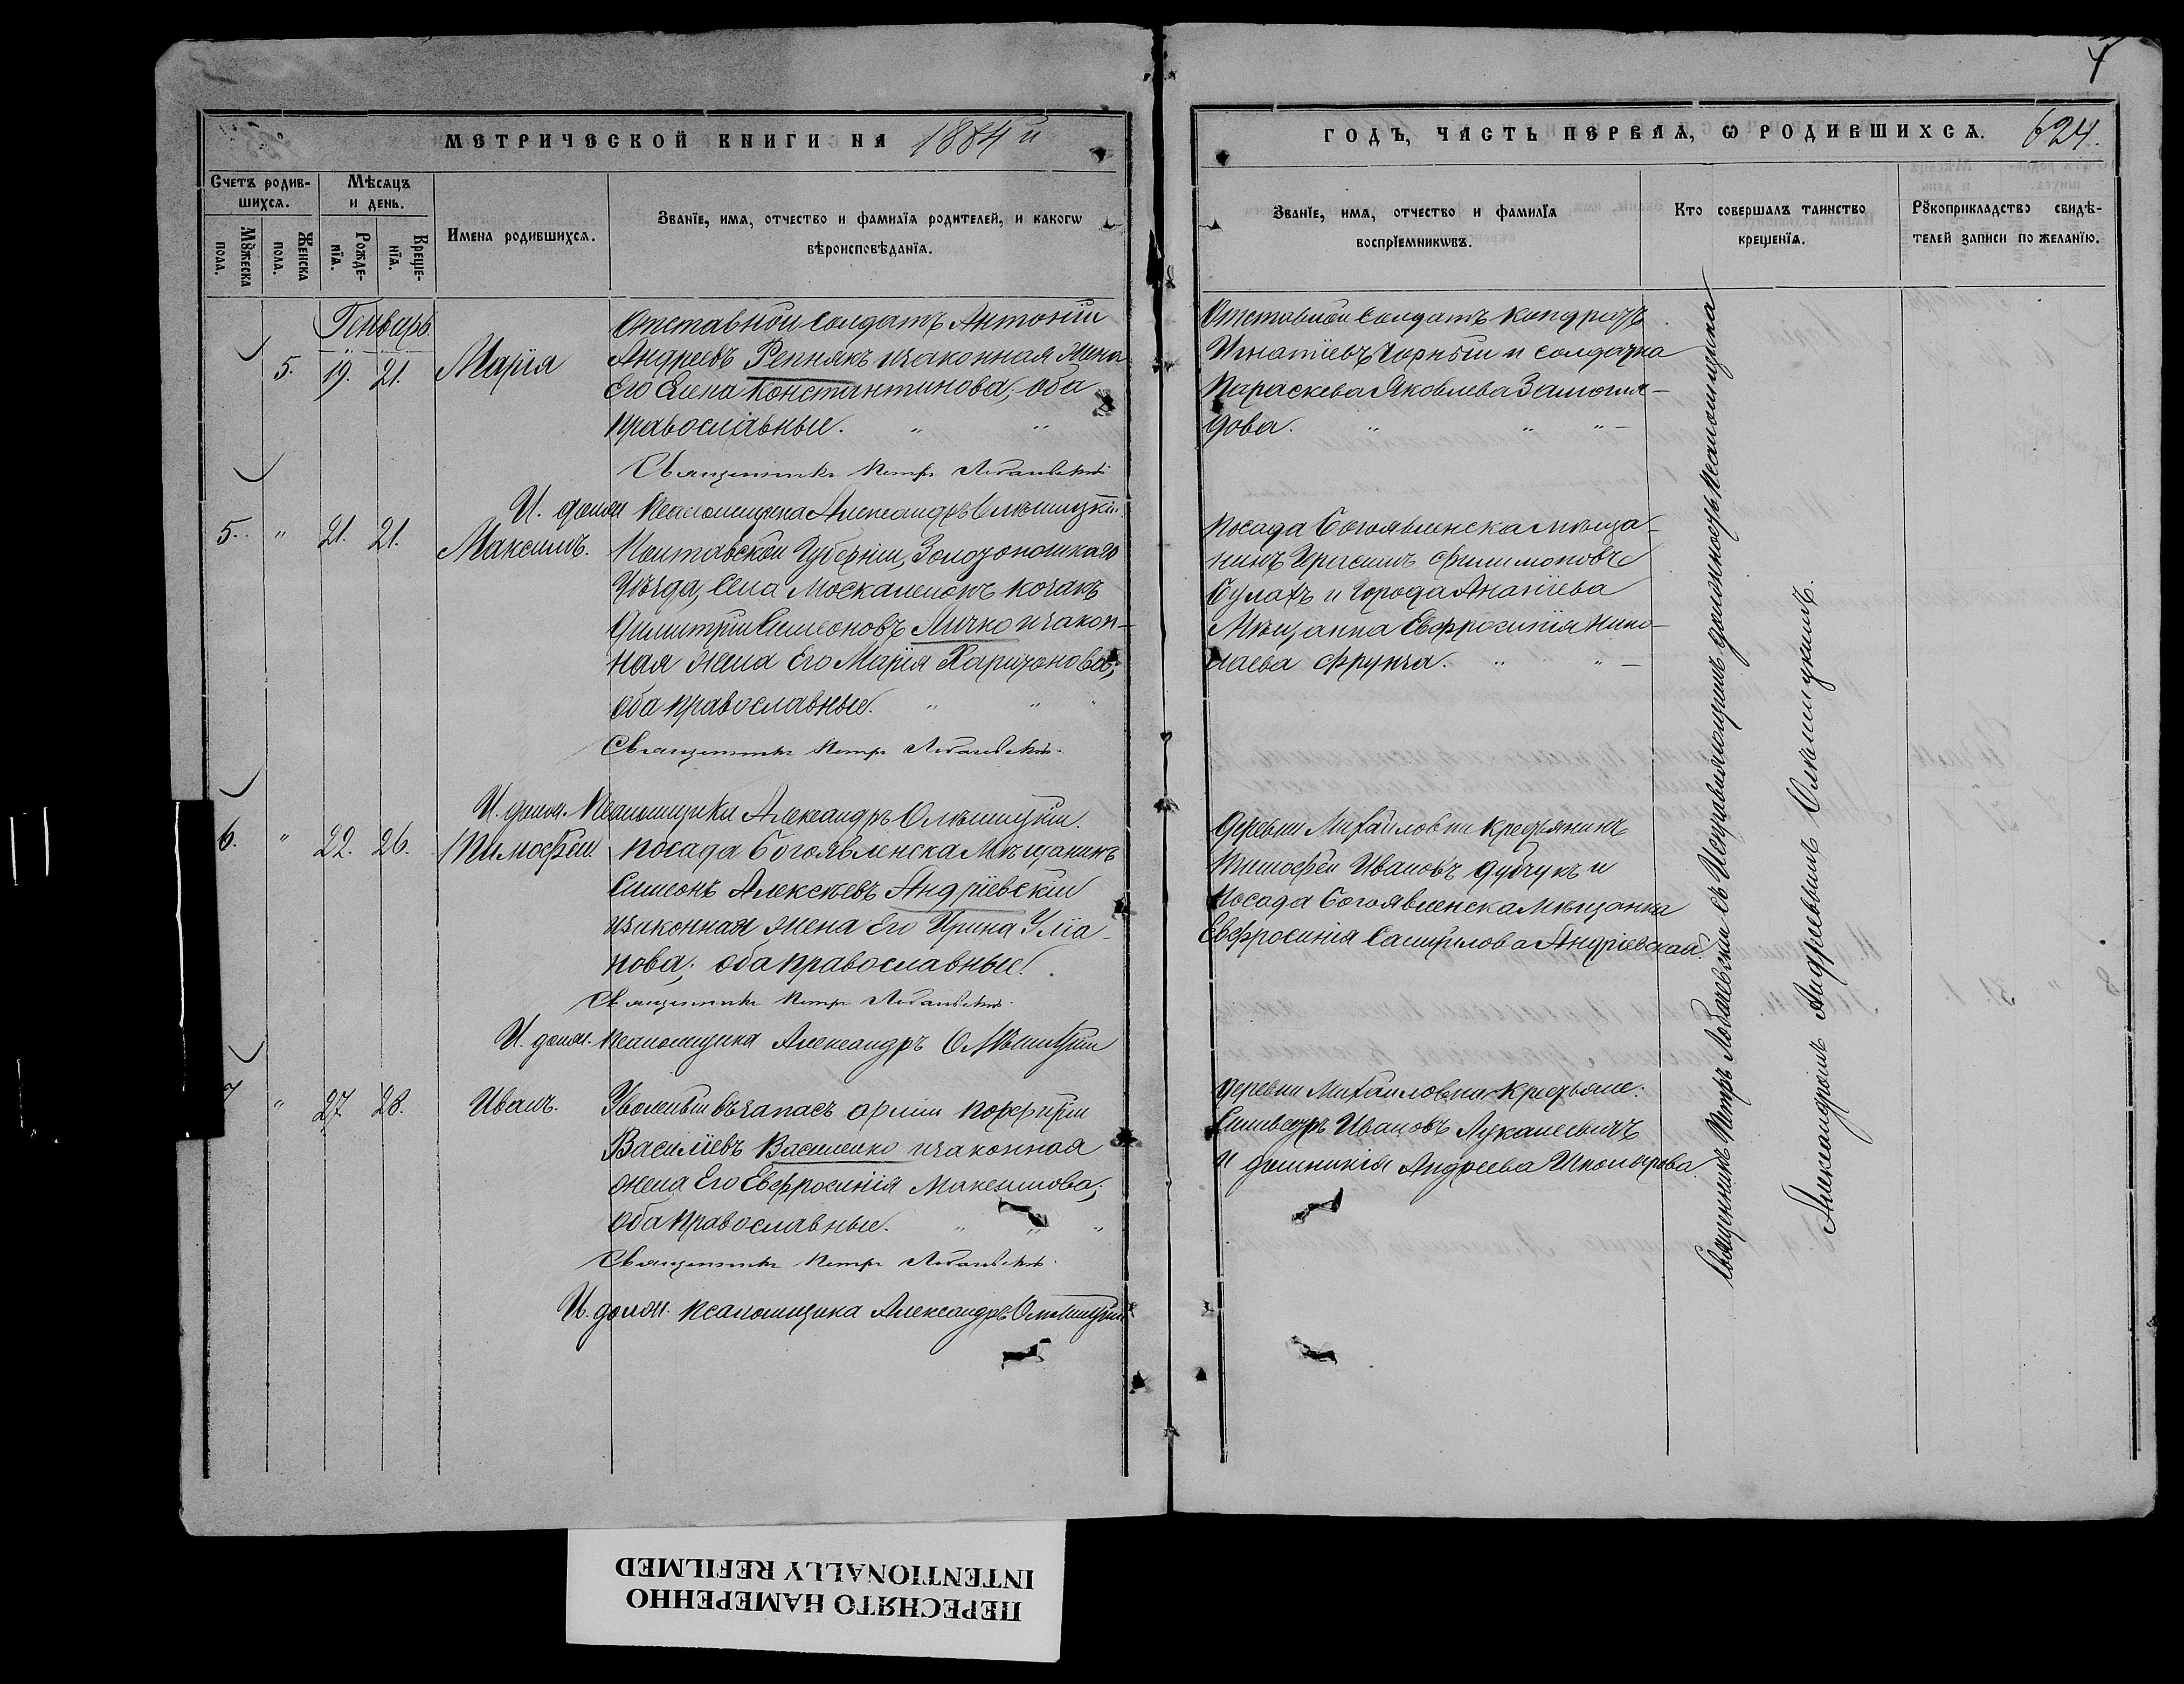 4
МЕТРИЧЕСКОЙ КНИГИ НА 1884 й
ГОДЪ, ЧАСТЬ ПЕРВАЯ, Ѡ РОДИВШИХСЯ. 624.
Счетъ родив-
шихся.
Мꙋжеска
пола.
Женска
пола.
Мѣсяцъ
и день.
Рожде-
нїя.
Креще-
нїя.
Имена родившихся.
Званїе, имя, отчество и фамилїя родителей, и какогѡ
вѣроисповѣданїя.
Званїе, имя, отчество и фамилїя
воспрїемникѡвъ.
Кто совершалъ таинство
крещенїя.
Рꙋкоприкладство свидѣ-
телей записи по желанїю.
Генварь
5. 19. 21. Марія
Отставной солдатъ Антоній
Андреевъ Репнякъ и законная жена
Его Елена Константинова, оба
православные. " "
Священникъ Петръ Лобачевскій
И. должн. Псаломщика Александръ Олѣшицкій.
Отставной солдатъ Кондратъ
Игнатіевъ Чорный и солдатка
Параскева Яковлева
дова. " " "
5. " 21. 21. Максимъ.
Полтавской Губерніи, Золотоношкаго
Уѣзда, Села Москаленокъ козакъ
Димитрій Симеоновъ Личко и закон-
ная жена Его Марія Харитонова;
оба православные. " " "
Священникъ Петръ Лобачевскій.
И. должн. Псаломщика Александръ Олѣшицкій.
Посада Богоявленска Мѣща-
нинъ Герасимъ Филимоновъ
Булатъ и Города Ананіева
Мѣщанка Евфросинія Нико-
лаева Фрунза. " "
6. " 22. 26. Тимофей.
Посада Богоявленска Мѣщанинъ
Симеонъ Алексѣевъ Андріевскій
и законная жена Его Ирина Уліа-
нова; оба православные.
Священникъ Петръ Лобачевскій.
И. должн. Псаломщика Александръ Олѣшицкій
Деревни Михайловки Крестьянинъ
Тимофей Ивановъ Дубчукъ и
Посада Богоявленска Мѣщанка
Евфросинія Самуилова Андріевская.
7 " 27. 28. Иванъ.
Уволенный въ запасъ арміи Порфирій
Василіевъ Василенко и законная
жена Его Евфросинія Максимова;
оба православные. " " "
Священникъ Петръ Лобачевскій.
И. должн. Псаломщика Александръ Олѣшицкій
Деревни Михайловки Крестьяне:
Сильвестръ Ивановъ Лукашевичъ
и Домникія Андреева
Священникъ Петръ Лобачевскій съ Исправляющимъ должность Псаломщика
Александромъ Андреевымъ Олѣшицкимъ.
ПЕРЕСНЯТО НАМЕРЕННО
INTENTIONALLY REFILMED